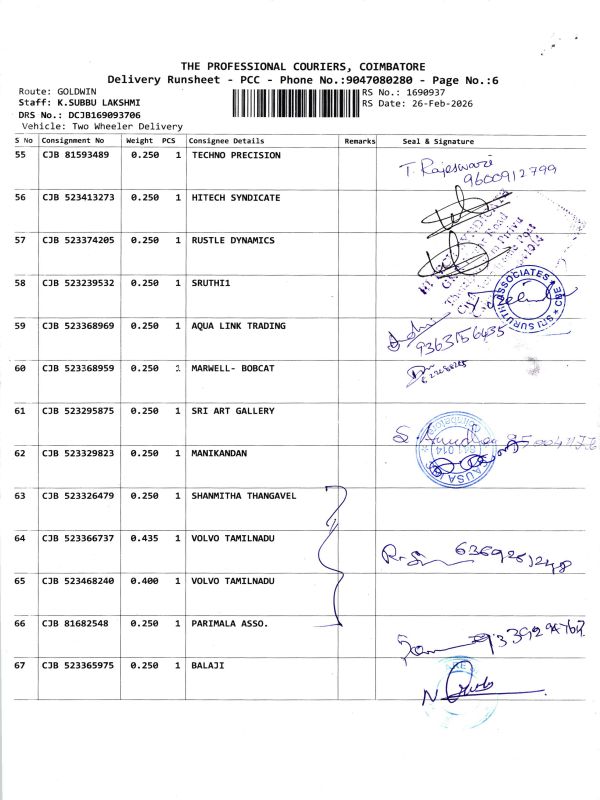 THE PROFESSIONAL COURIERS, COIMBATORE
Delivery Runsheet - PCC - Phone No.:9047080280 - Page No.:6
Route: GOLDWIN
RS No.: 1690937
Staff: K.SUBBU LAKSHMI
RS Date: 26-Feb-2026
DRS No.: DCJB169093706
Vehicle: Two Wheeler Delivery
S No Consignment No Weight PCS Consignee Details Remarks Seal & Signature
55 CJB 81593489 0.250 1 TECHNO PRECISION
T. Rajeswari
9600912799
56 CJB 523413273 0.250 1 HITECH SYNDICATE
57 CJB 523374205 0.250 1 RUSTLE DYNAMICS
58 CJB 523239532 0.250 1 SRUTHI1
SRI SURUTHI ASSOCIATES * CBE *
59 CJB 523368969 0.250 1 AQUA LINK TRADING
9363156435
60 CJB 523368959 0.250 1 MARWELL- BOBCAT
61 CJB 523295875 0.250 1 SRI ART GALLERY
62 CJB 523329823 0.250 1 MANIKANDAN
63 CJB 523326479 0.250 1 SHANMITHA THANGAVEL
64 CJB 523366737 0.435 1 VOLVO TAMILNADU
65 CJB 523468240 0.400 1 VOLVO TAMILNADU
66 CJB 81682548 0.250 1 PARIMALA ASSO.
67 CJB 523365975 0.250 1 BALAJI